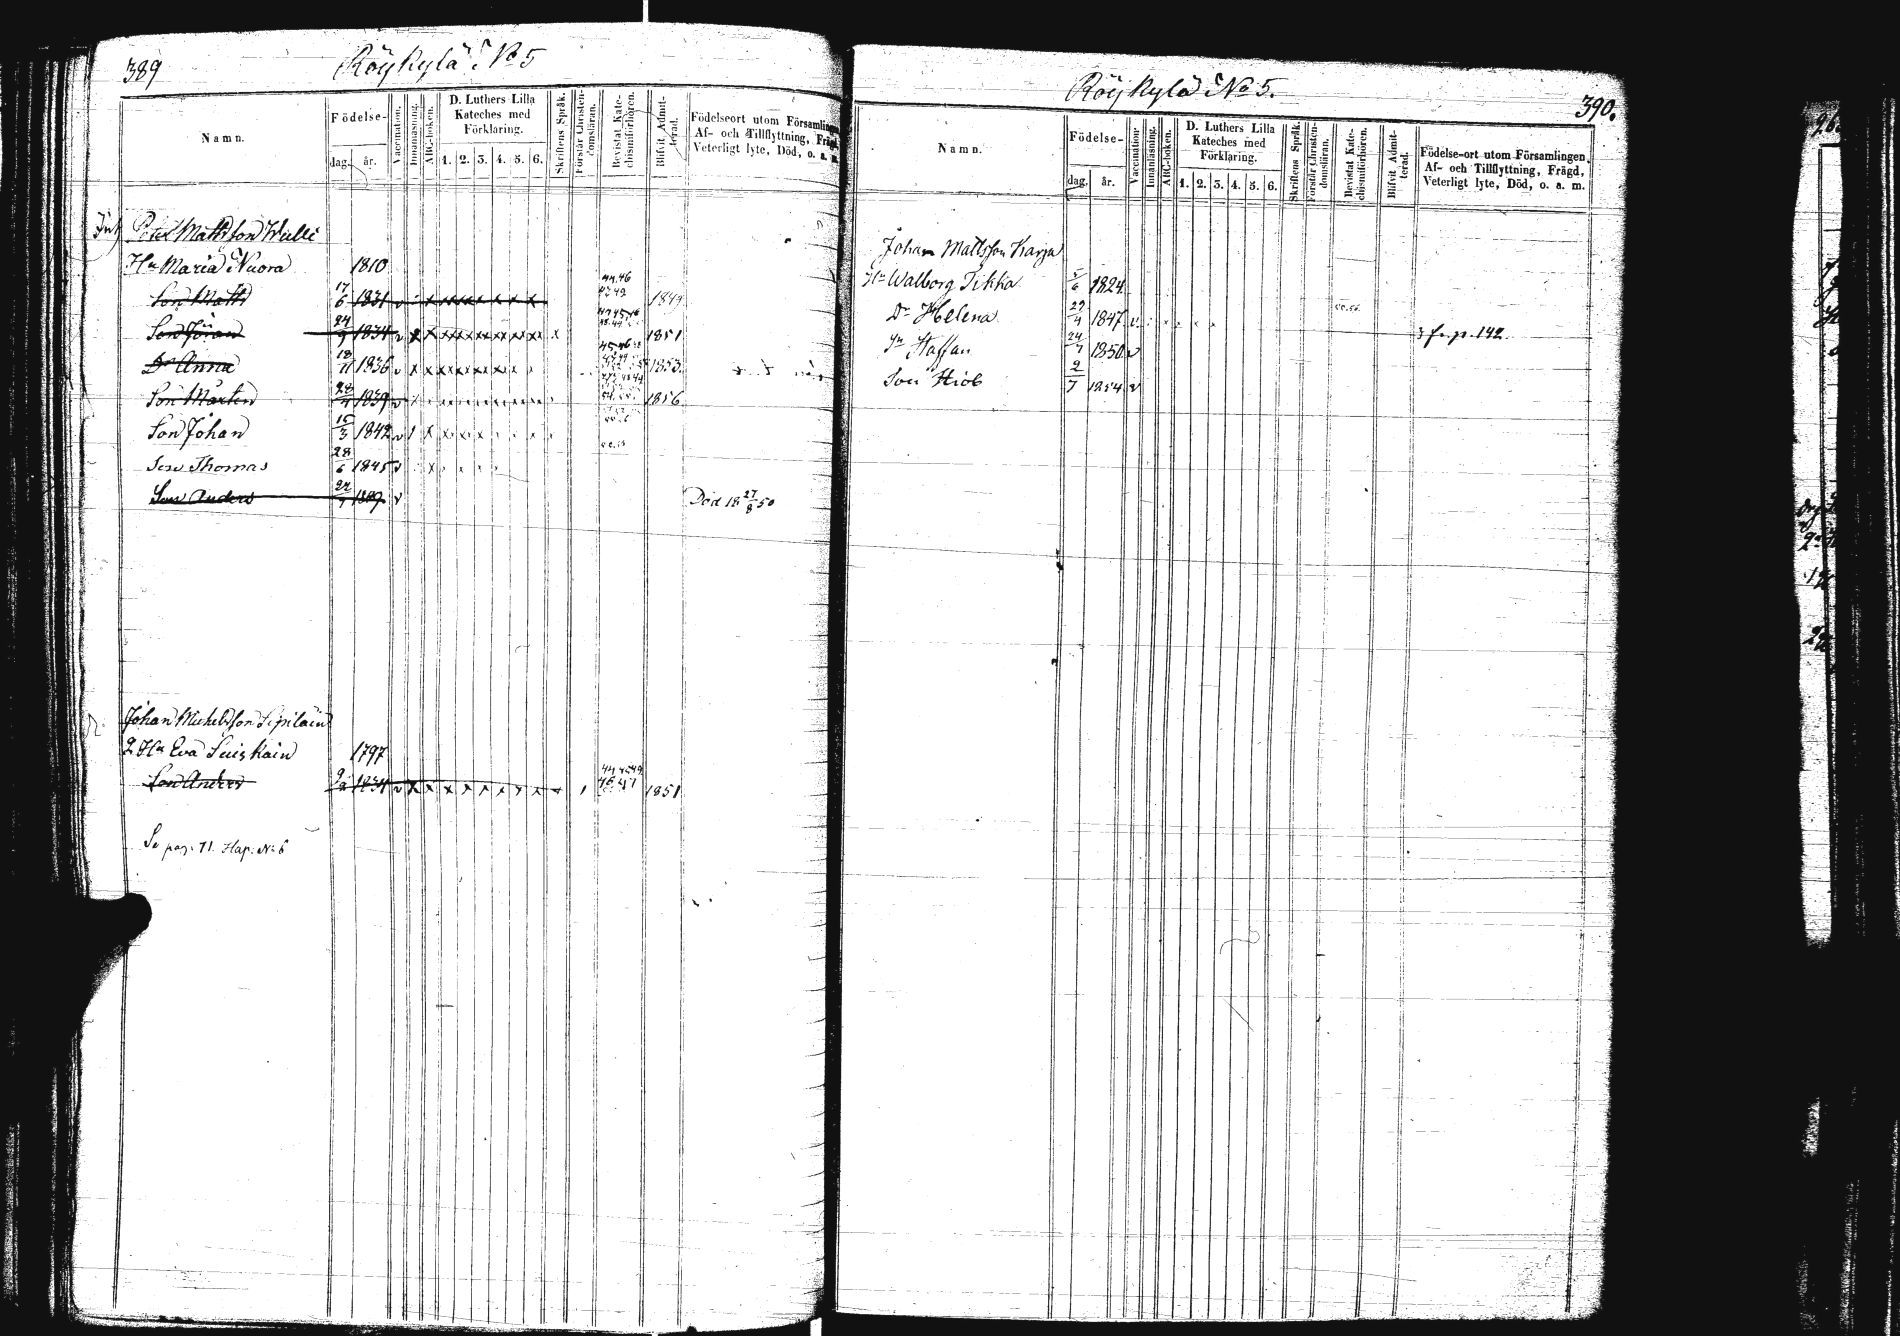 389
Röykylä No 5
Namn.
Födelse-
dag. år.
Vaccination.
Innanläsning.
ABC-boken.
D. Luthers Lilla
Kateches med
Förklaring.
1. 2. 3. 4. 5. 6.
Skriftens Språk.
Förstår Christen-
domsläran.
Bevistat Kate-
chismiförhören.
Blifvit Admit-
terad.
Födelseort utom Församlingen
Af- och Tillflyttning, Frägd,
Veterligt lyte, Död, o. a. m.
Inh Peter Mattsson Wälli
Hu Maria Nuora 1810
Son Matts 17/6 1831 v 1849
Son Jöran 24/9 1834 v 1851
Dr Anna 18/11 1836 v 1853
Son Mårten 28/4 1839 v 1856
Son Johan 15/3 1842 v
Son Thomas 28/6 1845 v
Son Anders v Död 18 27/8 50
Johan Michelsson Sipiläin
2 Hu Eva Suiskain 1797
Son Anders 1834 v 1851
Se pag. 71. Hap. No 6
Röykylä No 5.
390.
Namn.
Födelse-
dag. år.
Vaccination
Innanläsning.
ABC-boken.
D. Luthers Lilla
Kateches med
Förklaring.
1. 2. 3. 4. 5. 6.
Skriftens Språk.
Förstår Christen-
domsläran.
Bevistat Kate-
chismiförhören.
Blifvit Admit-
terad.
Födelse-ort utom Församlingen,
Af- och Tillflyttning, Frägd,
Veterligt lyte, Död, o. a. m.
Johan Mattsson Karja
Hu Walborg Tikka 5/6 1824.
Dr Helena 29/4 1847. v
Sn Staffan 24/7 1850. v fr. p. 142
Son Hiob 2/7 1854. v